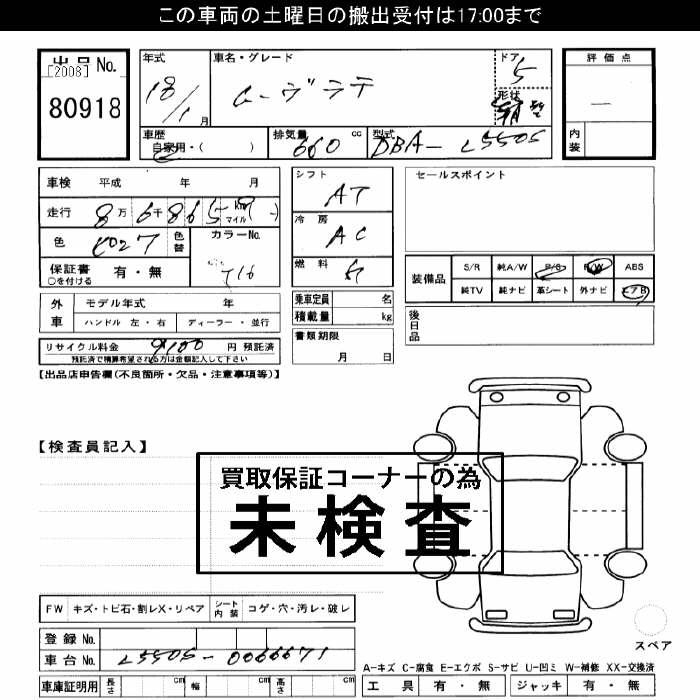 この車両の土曜日の搬出受付は17:00まで
出品 No.
[2008]
80918
年式
18/1 月
車名・グレード
ムーヴラテ
ドア
5
形状
評価点
―
内装
車歴
自家用・( )
排気量 cc
660
型式
DBA- L550S
車検 平成 年 月
走行 8 万 6 千 8 6 5 km マイル
色
色替
カラーNo.
T16
保証書 有・無
○を付ける
シフト
AT
冷房
AC
燃料
セールスポイント
装備品
S/R 純A/W P/S P/W ABS
純TV 純ナビ 革シート 外ナビ エアB
外車
モデル年式 年
ハンドル 左・右 ディーラー・並行
乗車定員 名
積載量 kg
後日品
リサイクル料金 9100 円 預託済
預託済で精算希望される方は金額記入して下さい
書類期限
月 日
【出品店申告欄(不良箇所・欠品・注意事項等)】
【検査員記入】
買取保証コーナーの為
未検査
FW キズ・トビ石・割レX・リペア シート内装 コゲ・穴・汚レ・破レ
登録 No.
車台 No. L550S-0066671
車庫証明用 長さ cm 幅 cm 高さ cm
スペア
A-キズ C-腐食 E-エクボ S-サビ U-凹ミ W-補修 XX-交換済
工具 有・無 ジャッキ 有・無